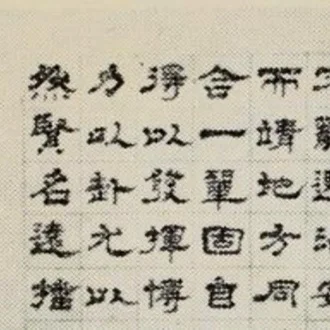 而靖地方同
合一鞏固自
得以發揮博
力以赴尤以
然賢名遠播